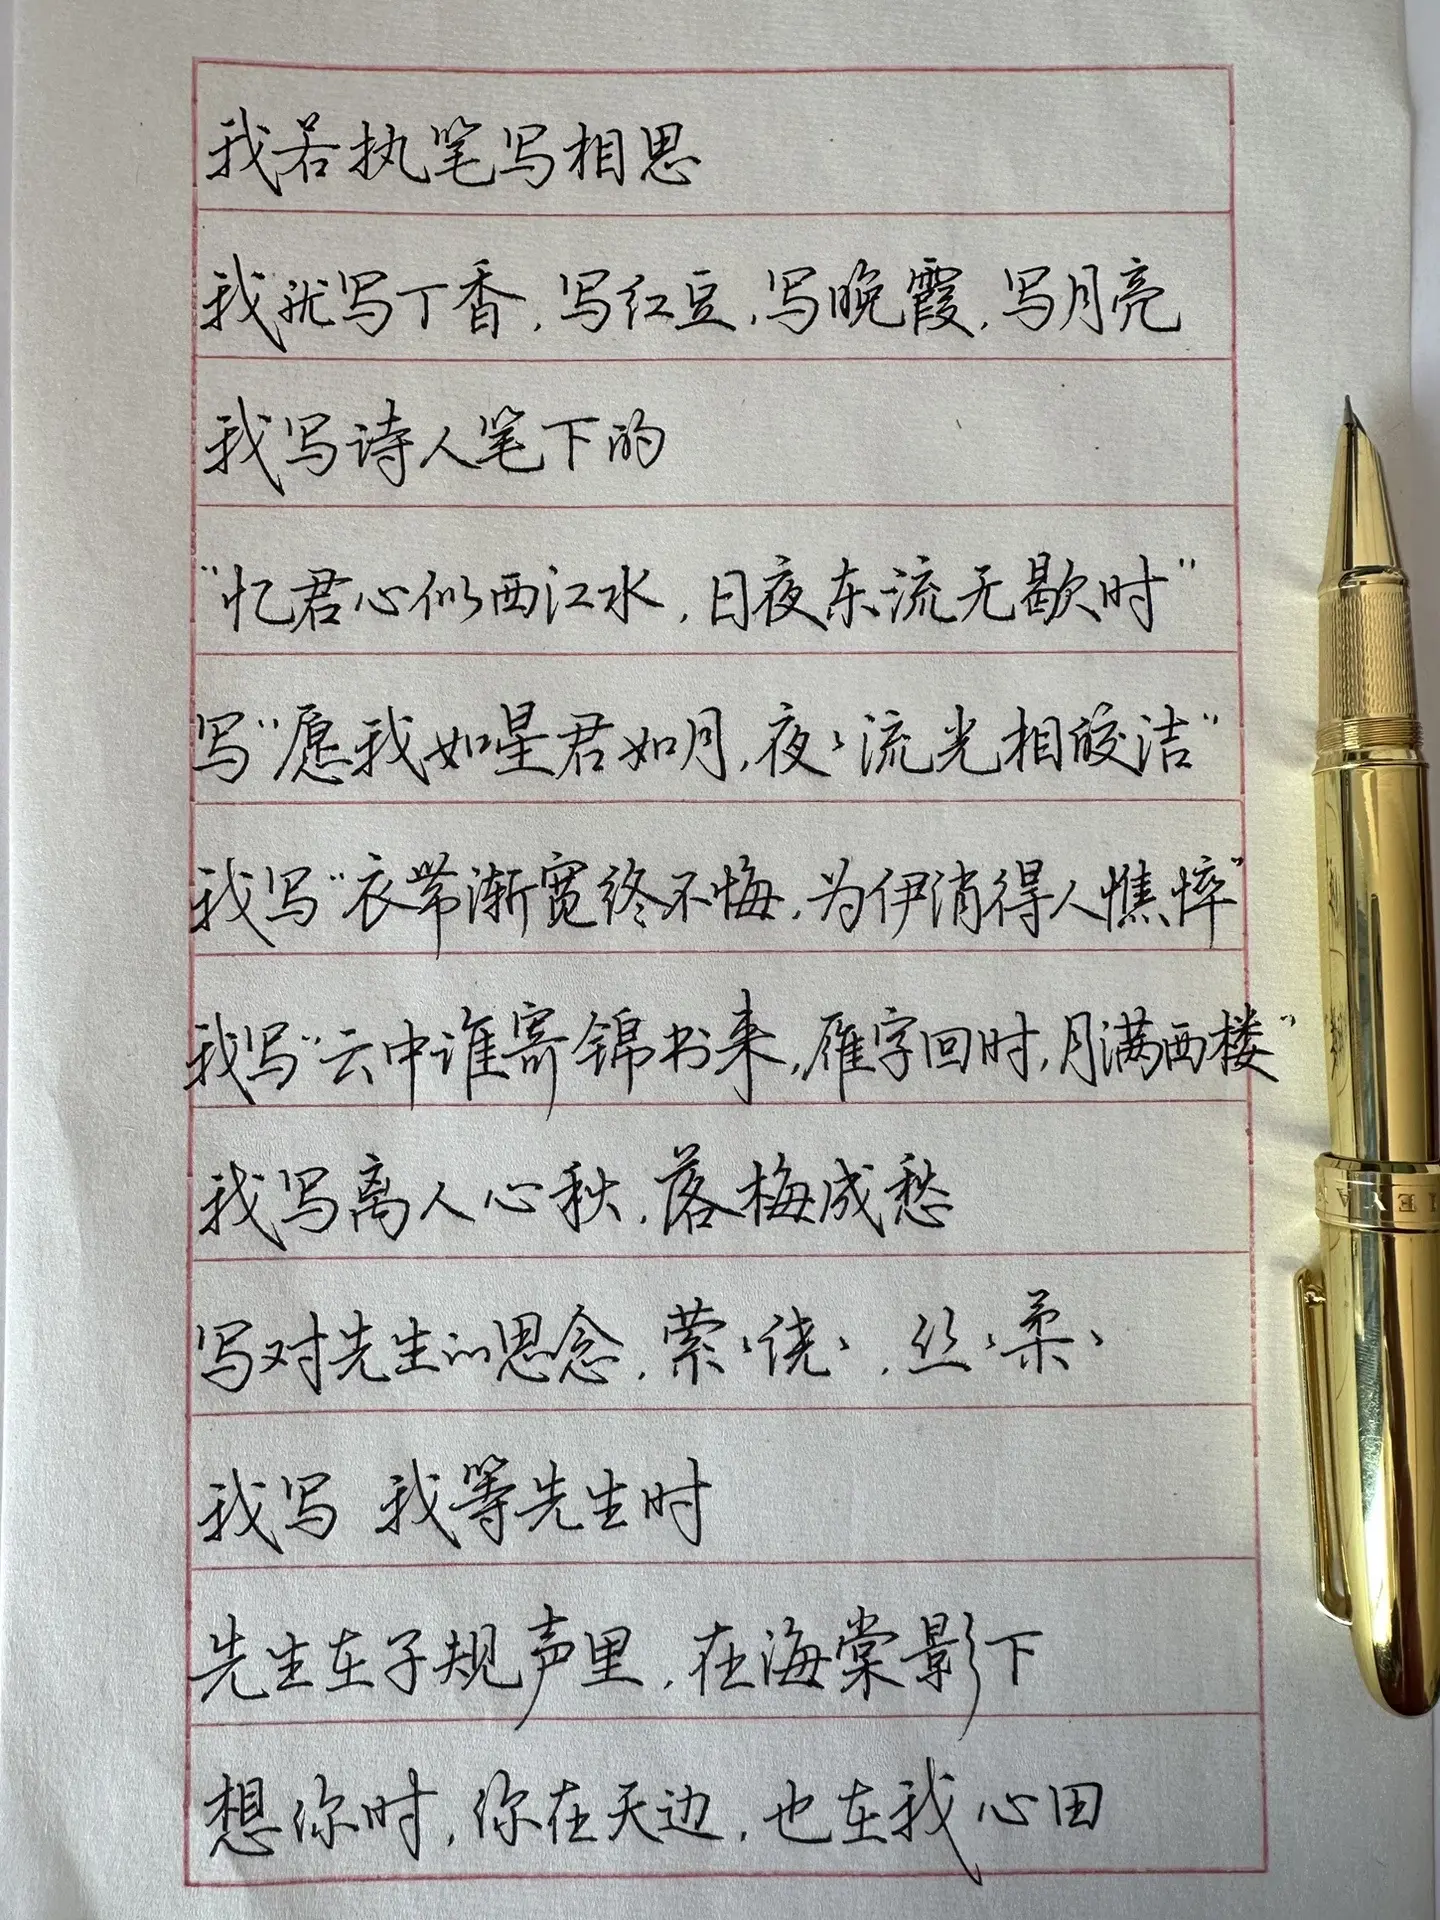 我若执笔写相思
我就写丁香，写红豆，写晚霞，写月亮
我写诗人笔下的
“忆君心似西江水，日夜东流无歇时”
写“愿我如星君如月，夜、流光相皎洁”
我写“衣带渐宽终不悔，为伊消得人憔悴”
我写“云中谁寄锦书来，雁字回时，月满西楼”
我写离人心秋，落梅成愁
写对先生的思念，萦、绕、，丝、柔、
我写 我等先生时
先生在子规声里，在海棠影下
想你时，你在天边，也在我心田